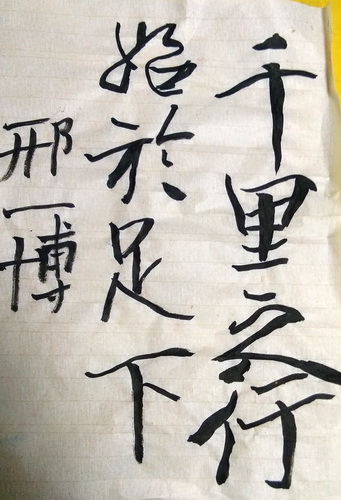 千里之行
始於足下
邢一博